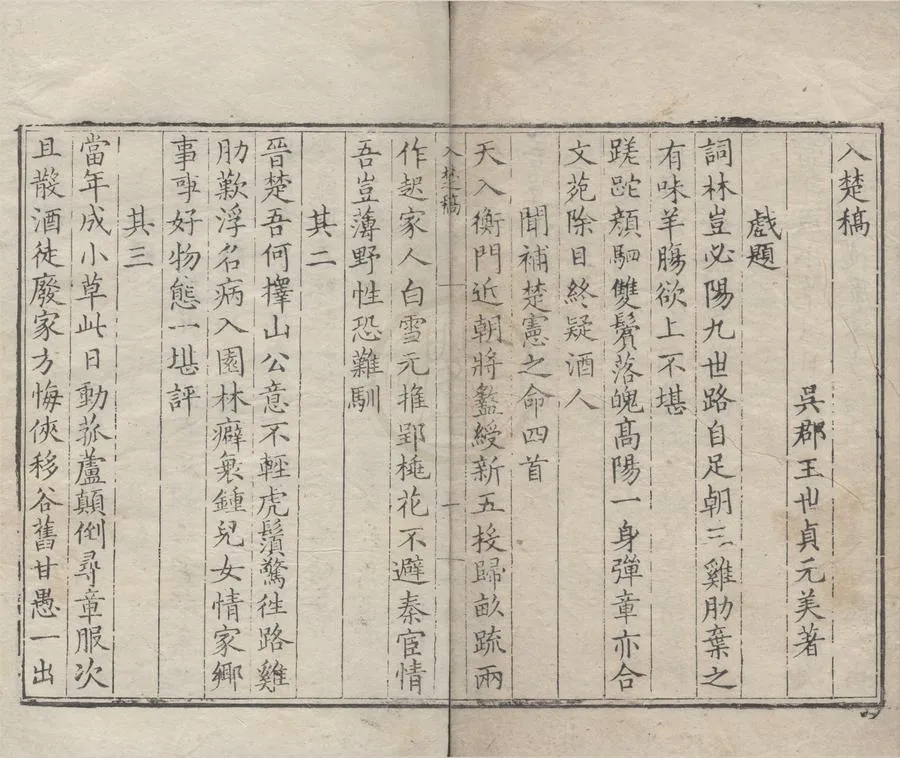 入楚稿
吳郡王世貞元美著
戲題
詞林豈必陽九世路自足朝三雞肋棄之
有味羊腸欲上不堪
蹉跎顏駟雙鬢落魄高陽一身彈章亦合
文苑除目終疑酒人
聞補楚憲之命四首
天入衡門近朝將盭綬新五投歸畝疏兩
入楚稿
一
作起家人白雪元推郢桃花不避秦宦情
吾豈薄野性恐難馴
其二
晉楚吾何擇山公意不輕虎鬚驚徃路雞
肋歎浮名病入園林癖衰鍾兒女情家鄉
事事好物態一堪評
其三
當年成小草此日動菰蘆顛倒尋章服次
且散酒徒廢家方悔俠移谷舊甘愚一出